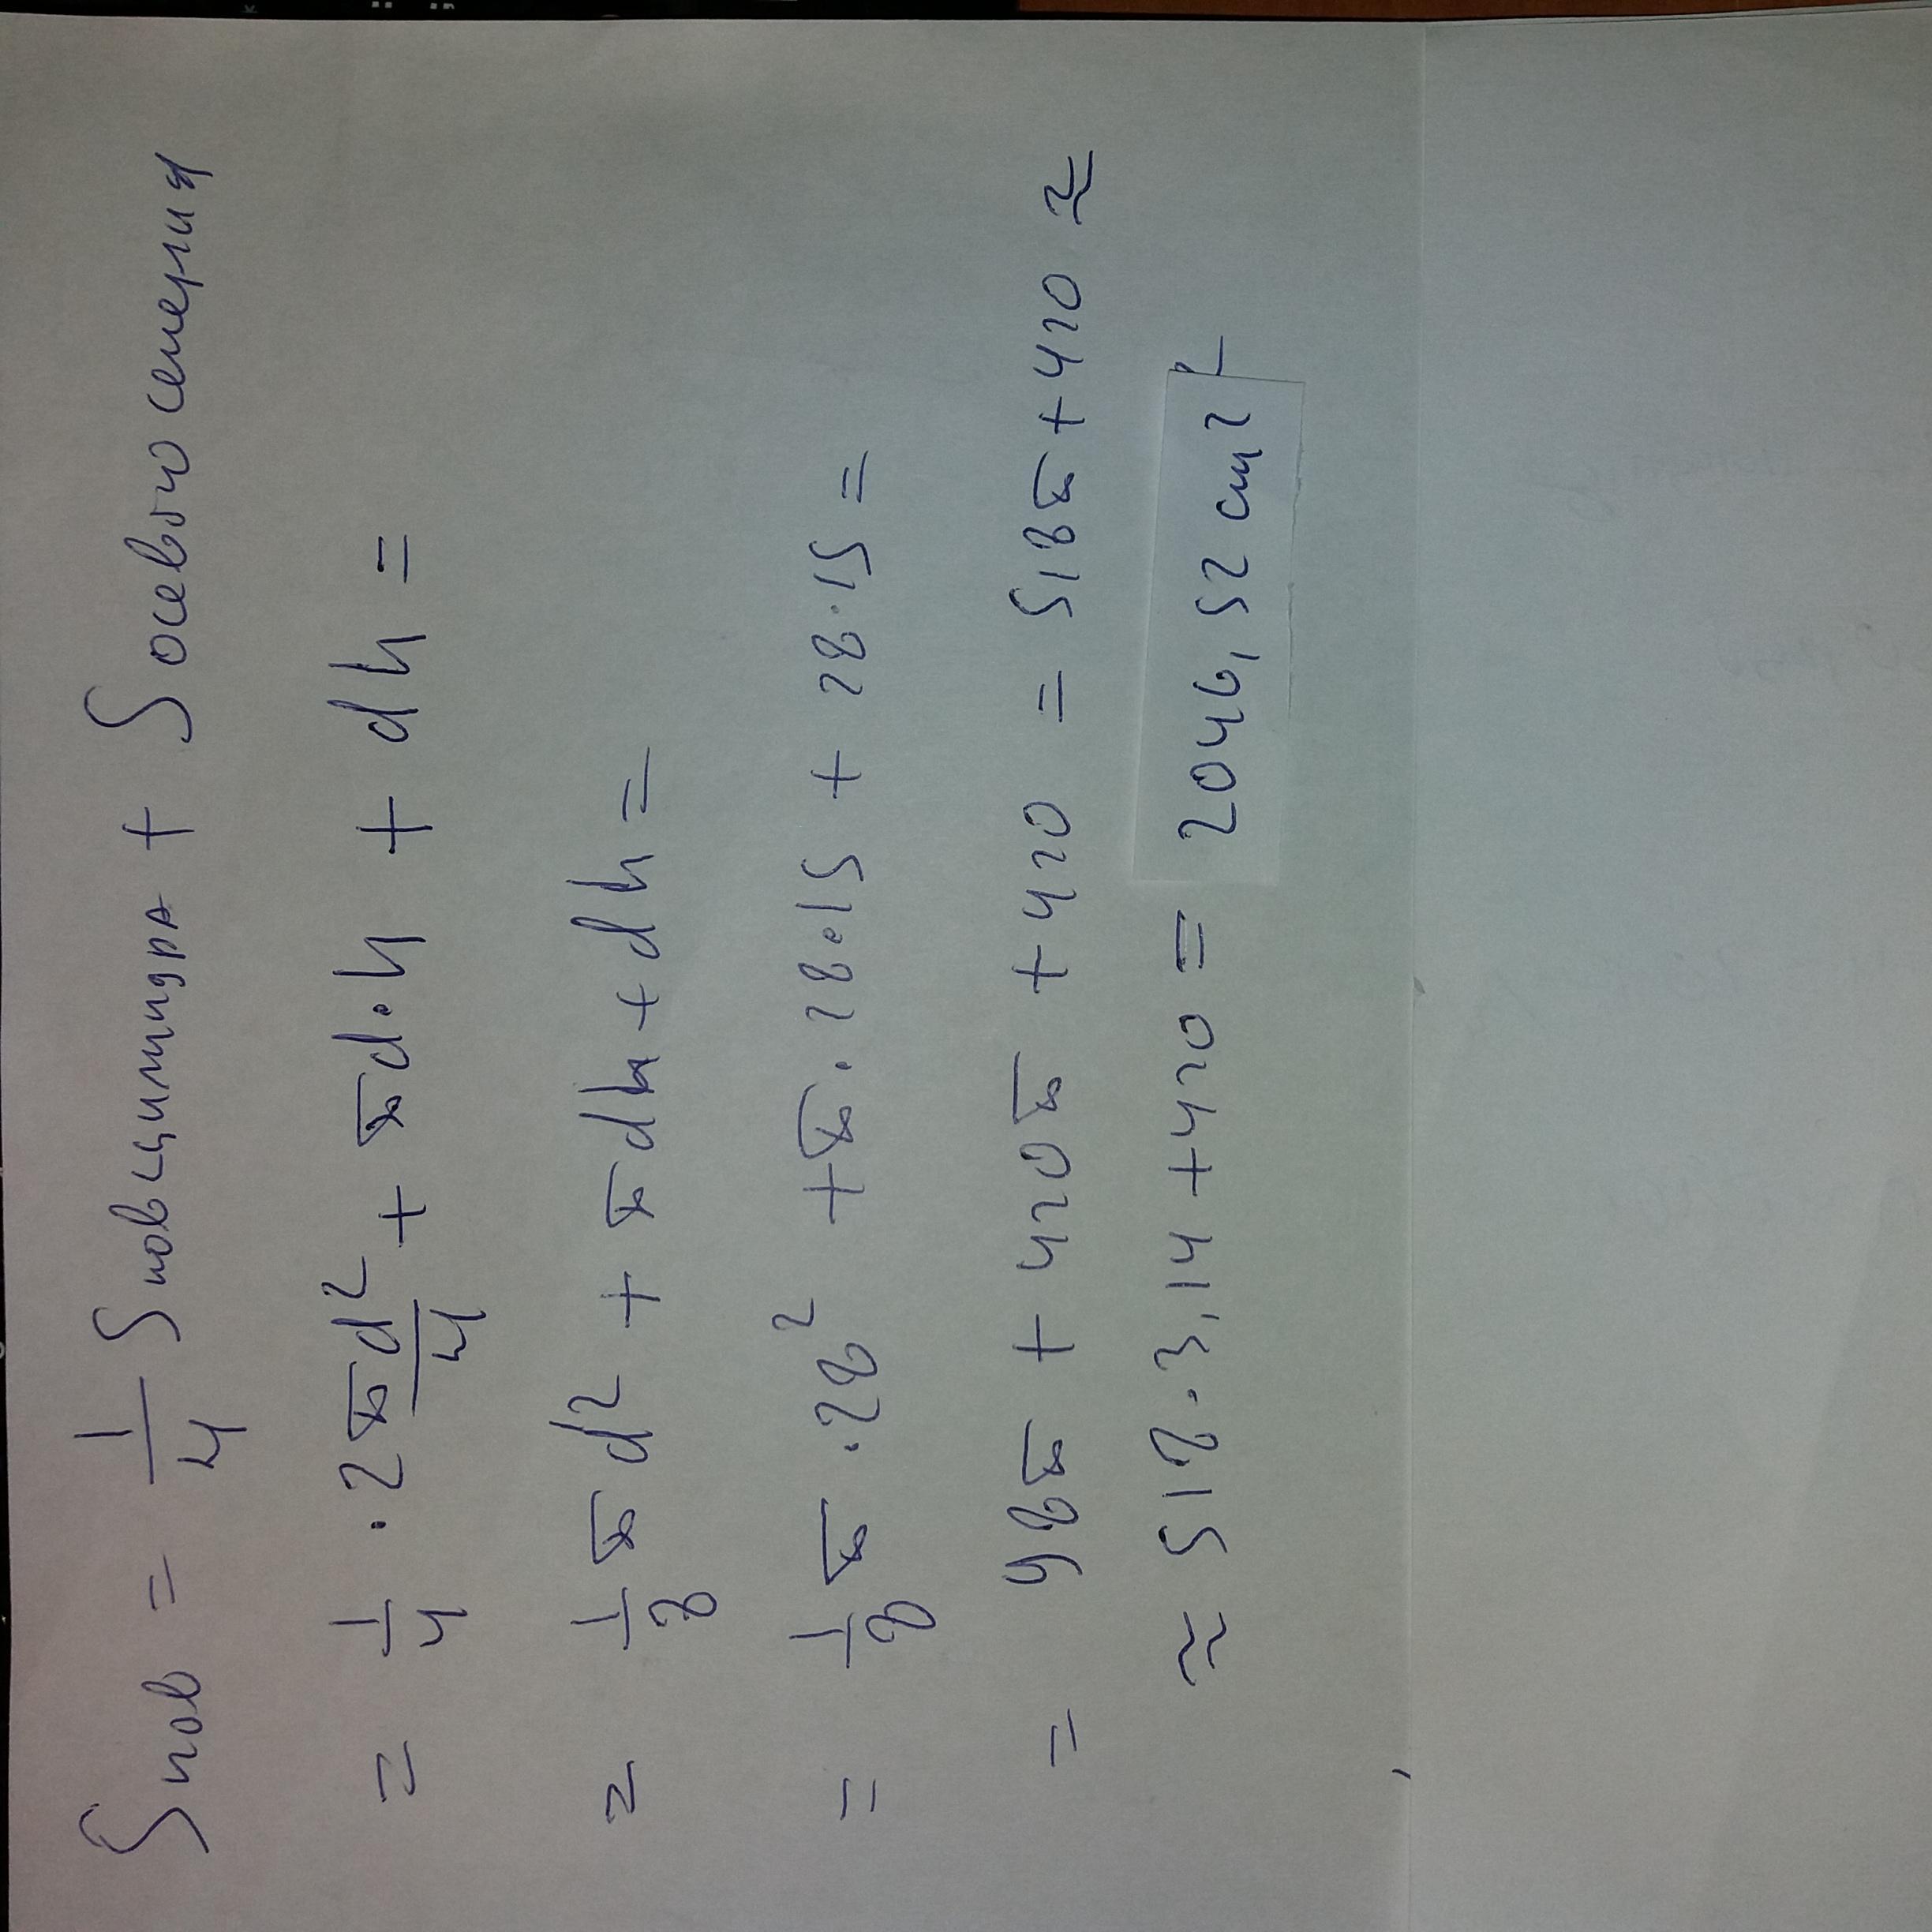 Sпов = 1/4 Sпов цилиндра + Sосевого сечения
= 1/4 · 2πd²/4 + πd·h + dh =
= 1/8 πd² + πdh + dh =
= 1/8 π · 28² + π · 28·15 + 28·15 =
= 98π + 420π + 420 = 518π + 420 ≈
≈ 518 · 3,14 + 420 = 2046,52 cm²